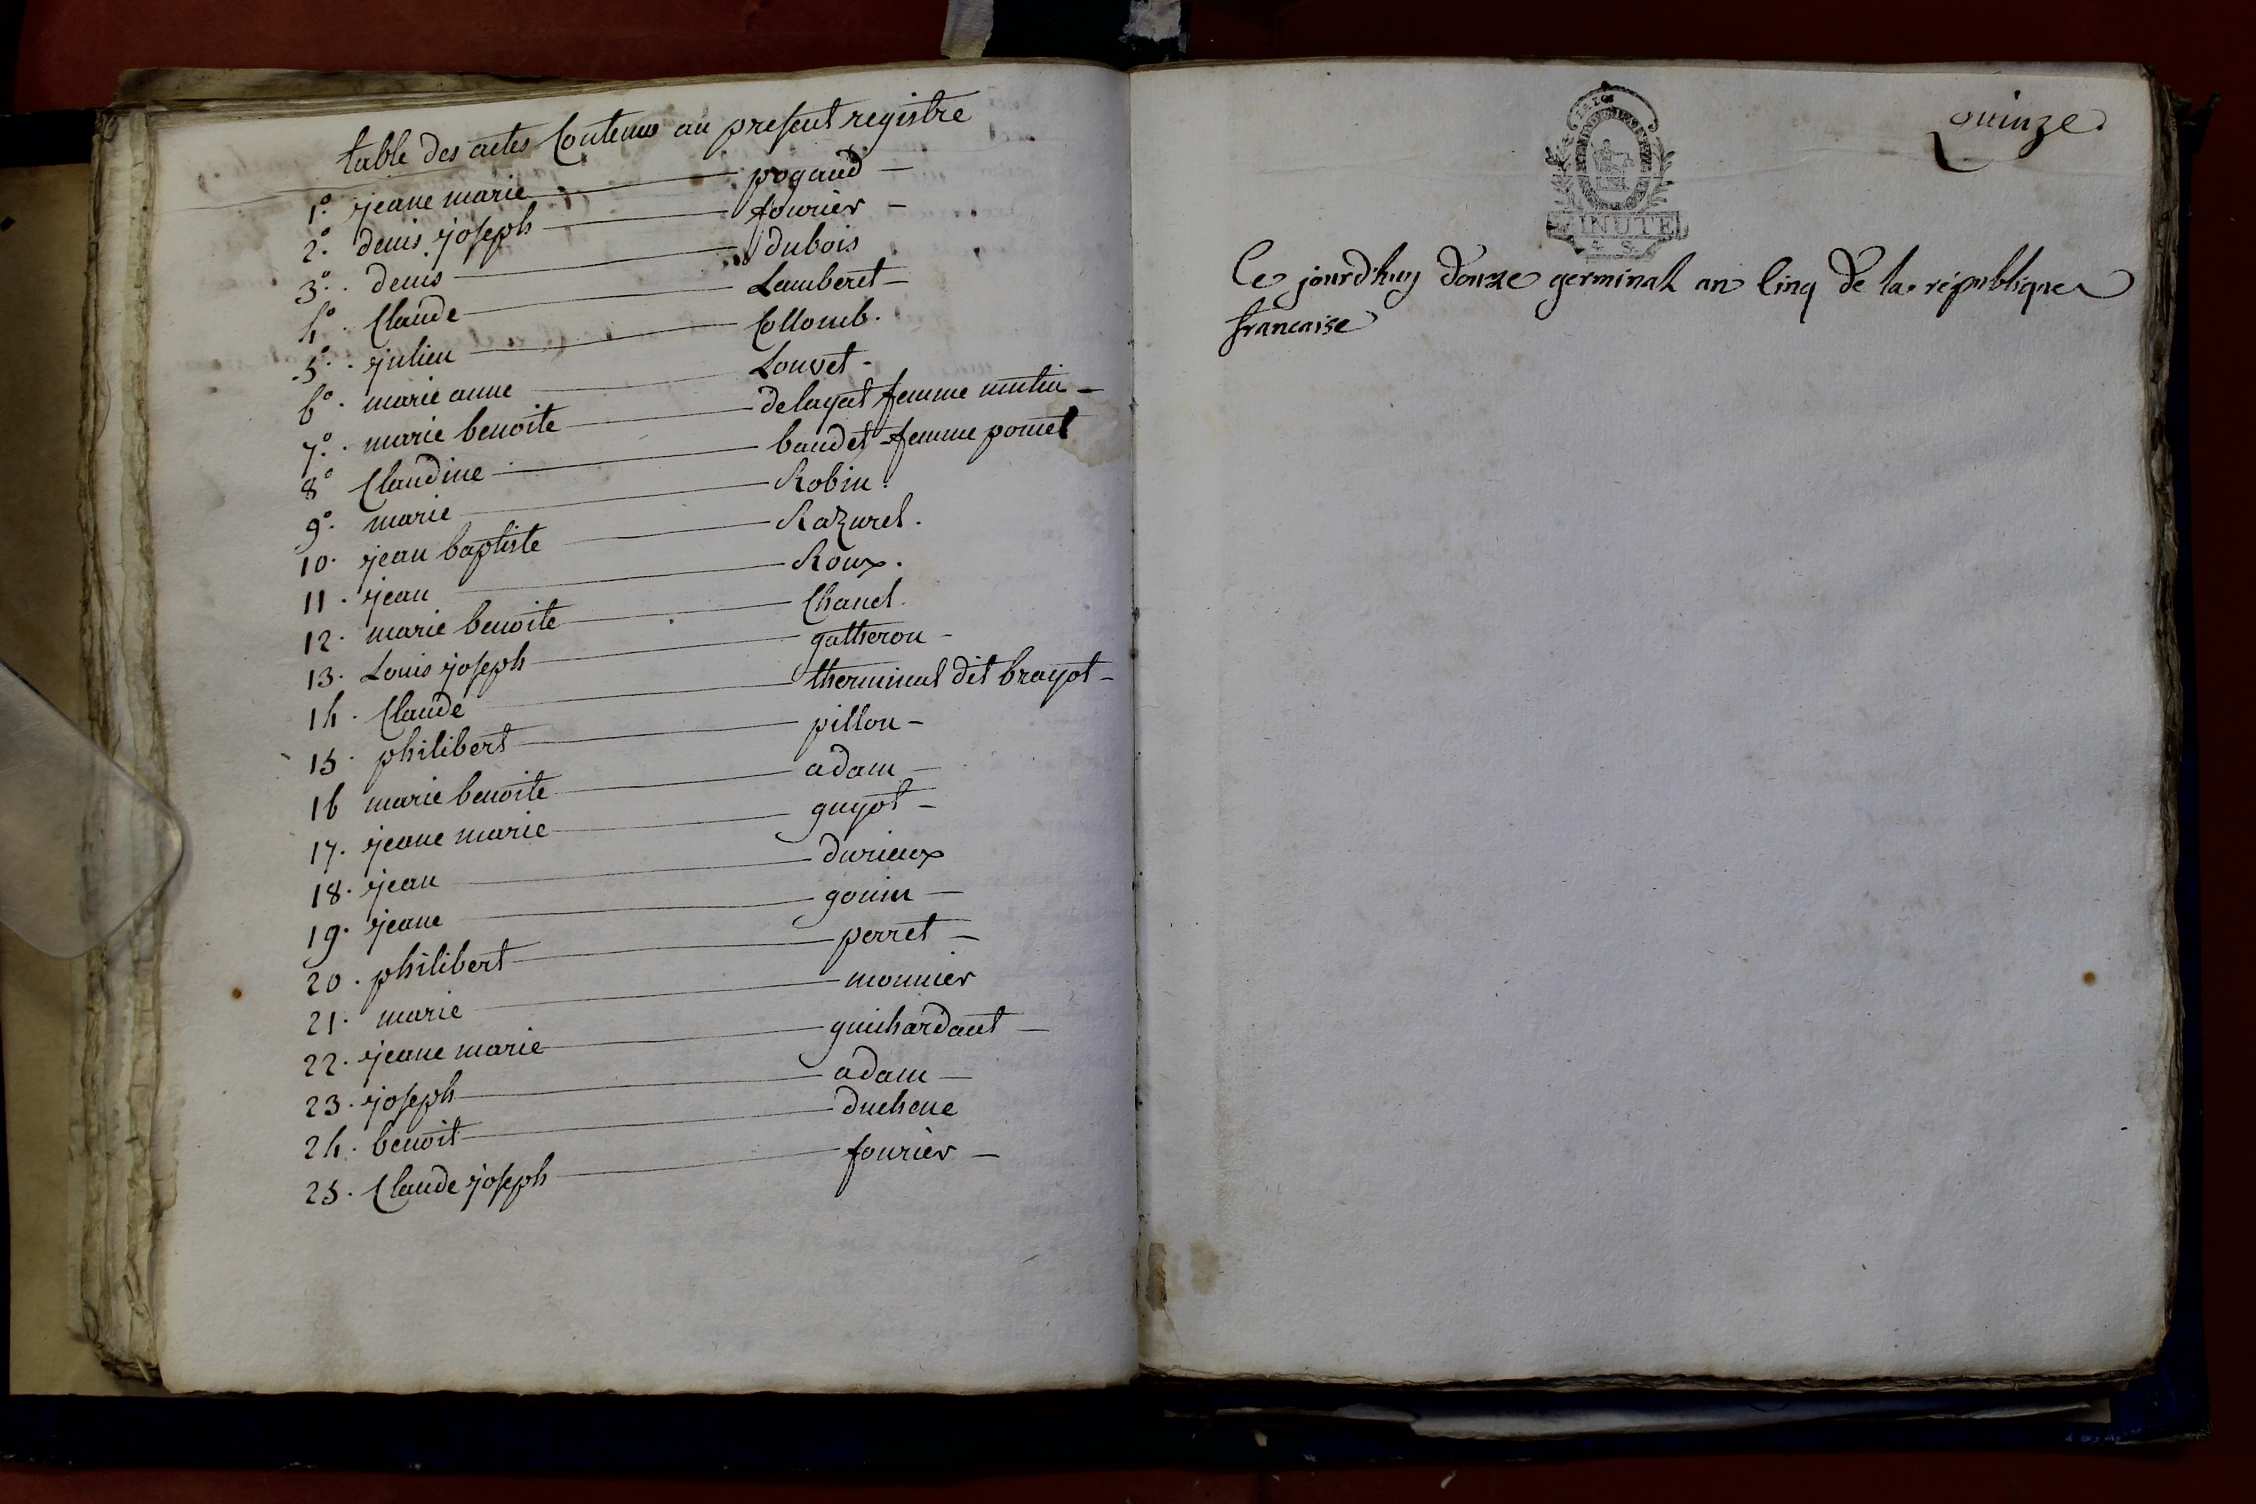 table des actes Contenus au present registre
1°. jeane marie — pogaud —
2°. denis joseph — fourier —
3°. denis — dubois
4°. Claude — Lamberet —
5°. julien — Collomb.
6°. marie anne — Louvet -
7°. marie benoite — delayat femme mutin —
8° Claudine — baudet femme pomet
9°. marie — Robin.
10. jean baptiste — Razurel.
11. jean — Roux.
12. marie benoite — Chanel.
13. Louis joseph — gatheron —
14. Claude — therminat dit brayot —
15. philibert — pillon —
16 marie benoite — adam —
17. jeane marie — guyot —
18. jean — durieux
19. jeane — gonin —
20. philibert — perret —
21. marie — monnier
22. jeane marie — guichardant —
23. joseph — adam —
24. benoit — duchene
25. Claude joseph — fourier —
quinze.
MINUTE
4. S.
Ce jourd'huy douze germinal an Cinq de la république
francaise